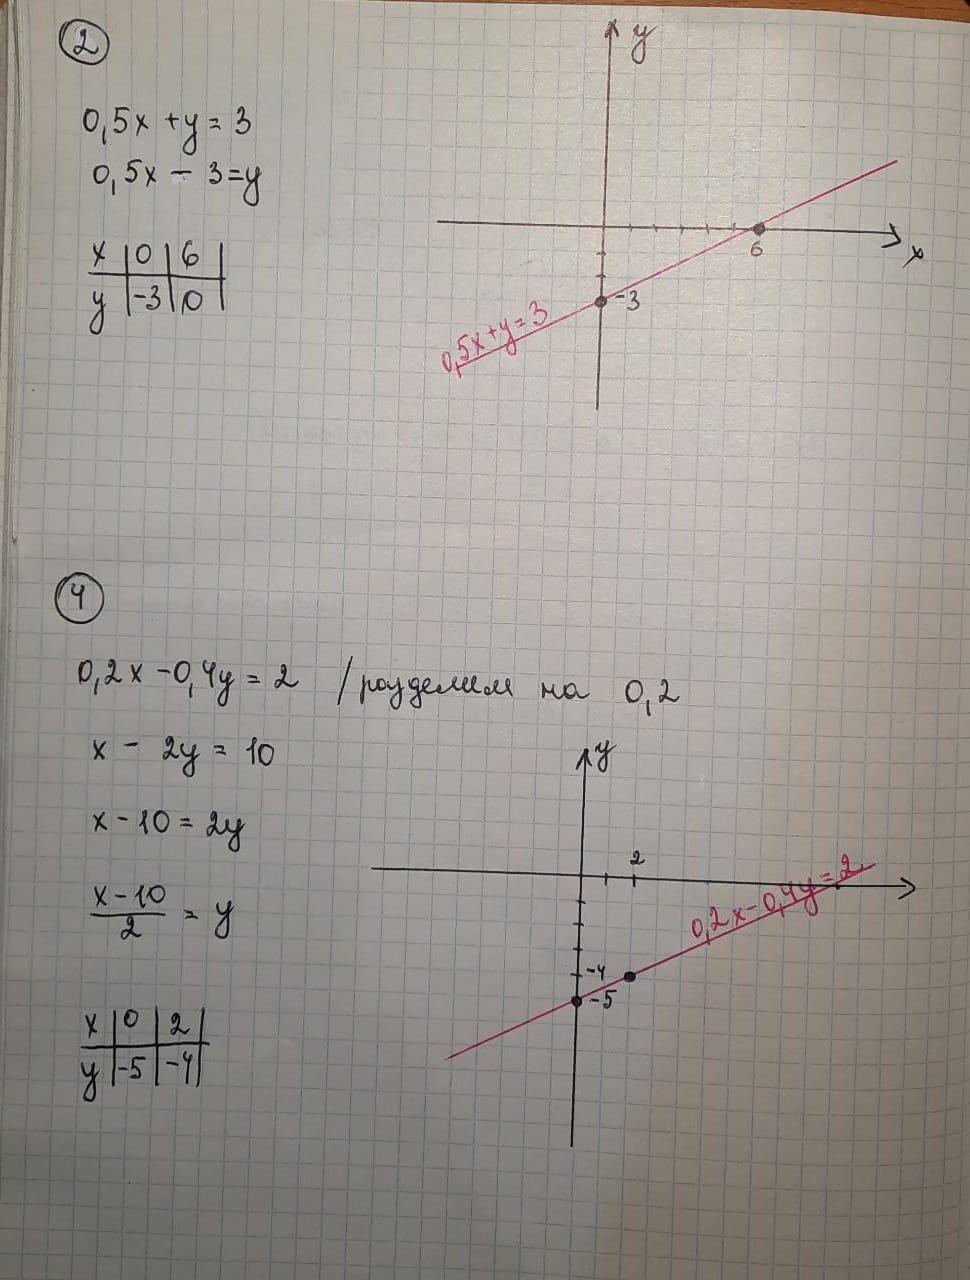 2
0,5x + y = 3
0,5x - 3 = y
x | 0 | 6 |
y | -3 | 0 |
y
x
6
-3
0,5x + y = 3
4
0,2x - 0,4y = 2 / разделим на 0,2
x - 2y = 10
x - 10 = 2y
x - 10
2
= y
x | 0 | 2 |
y | -5 | -4 |
y
2
-4
-5
0,2x - 0,4y = 2